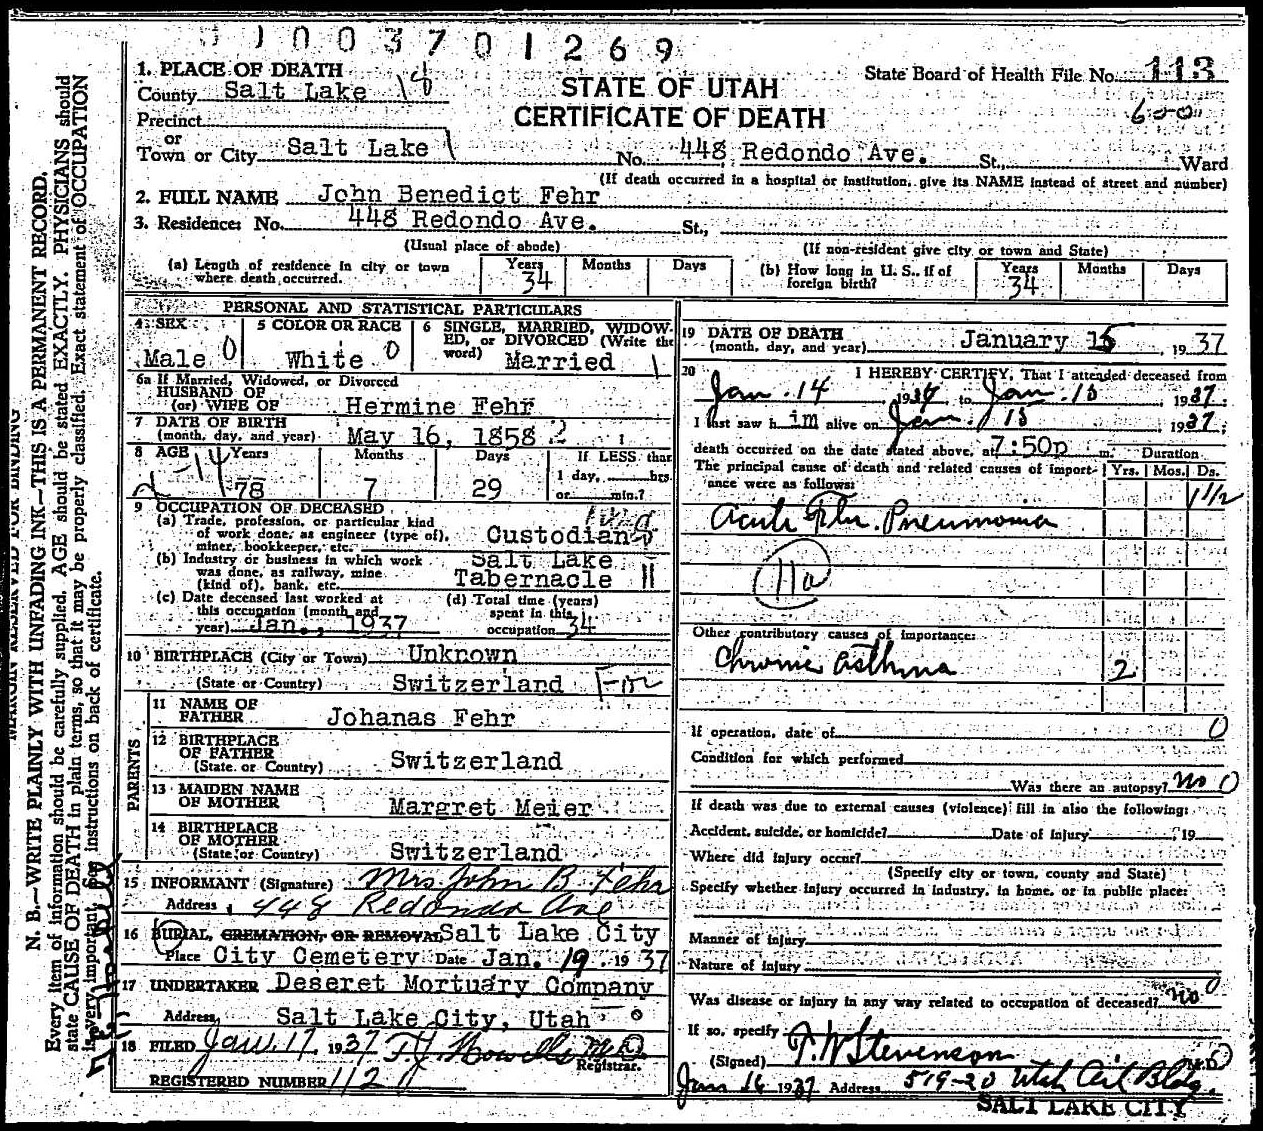 1003701269
1. PLACE OF DEATH
County Salt Lake 18
STATE OF UTAH
CERTIFICATE OF DEATH
State Board of Health File No. 113
600
Precinct
or
Town or City Salt Lake 1 No. 448 Redondo Ave. St., Ward
(If death occurred in a hospital or institution, give its NAME instead of street and number)
2. FULL NAME John Benedict Fehr
3. Residence: No. 448 Redondo Ave. St.,
(Usual place of abode) (If non-resident give city or town and State)
(a) Length of residence in city or town where death occurred. Years 34 Months Days
(b) How long in U. S., if of foreign birth? Years 34 Months Days
PERSONAL AND STATISTICAL PARTICULARS
4 SEX Male 0
5 COLOR OR RACE White 0
6 SINGLE, MARRIED, WIDOWED, or DIVORCED (Write the word) Married 1
6a If Married, Widowed, or Divorced
HUSBAND OF
(or) WIFE OF Hermine Fehr
7 DATE OF BIRTH
(month, day, and year) May 16, 1858 2
8 AGE Years 78 Months 7 Days 29 If LESS than 1 day, hrs. or min.?
9 OCCUPATION OF DECEASED
(a) Trade, profession, or particular kind of work done, as engineer (type of), miner, bookkeeper, etc. Custodian
(b) Industry or business in which work was done, as railway, mine (kind of), bank, etc. Salt Lake Tabernacle 11
(c) Date deceased last worked at this occupation (month and year) Jan., 1937
(d) Total time (years) spent in this occupation 34
10 BIRTHPLACE (City or Town) Unknown
(State or Country) Switzerland
PARENTS
11 NAME OF FATHER Johanas Fehr
12 BIRTHPLACE OF FATHER (State or Country) Switzerland
13 MAIDEN NAME OF MOTHER Margret Meier
14 BIRTHPLACE OF MOTHER (State or Country) Switzerland
15 INFORMANT (Signature) Mrs John B Fehr
Address 448 Redondo Ave
16 BURIAL, CREMATION, OR REMOVAL Salt Lake City
Place City Cemetery Date Jan. 19, 1937
17 UNDERTAKER Deseret Mortuary Company
Address Salt Lake City, Utah
18 FILED Jan. 17, 1937 T.J. Howells MD
Registrar.
REGISTERED NUMBER 112
19 DATE OF DEATH
(month, day, and year) January 15, 1937
20 I HEREBY CERTIFY, That I attended deceased from
Jan. 14 1937 to Jan. 15, 1937.
I last saw him alive on Jan. 15, 1937;
death occurred on the date stated above, at 7:50p m. Duration
The principal cause of death and related causes of importance were as follows: Yrs. Mos. Ds.
1 1/2
Acute Pneumonia
11a
Other contributory causes of importance:
Chronic asthma 2
If operation, date of 0
Condition for which performed
Was there an autopsy? No 0
If death was due to external causes (violence) fill in also the following:
Accident, suicide, or homicide? Date of injury , 19
Where did injury occur?
(Specify city or town, county and State)
Specify whether injury occurred in industry, in home, or in public place:
Manner of injury
Nature of injury
Was disease or injury in any way related to occupation of deceased? No 0
If so, specify
(Signed) F. W Stevenson M.D.
Jan 16 1937 Address 519-20 Utah Oil Bldg.
SALT LAKE CITY
MARGIN RESERVED FOR BINDING
N. B.—WRITE PLAINLY WITH UNFADING INK—THIS IS A PERMANENT RECORD.
Every item of information should be carefully supplied. AGE should be stated EXACTLY. PHYSICIANS should
state CAUSE OF DEATH in plain terms, so that it may be properly classified. Exact statement of OCCUPATION
is very important. See instructions on back of certificate.